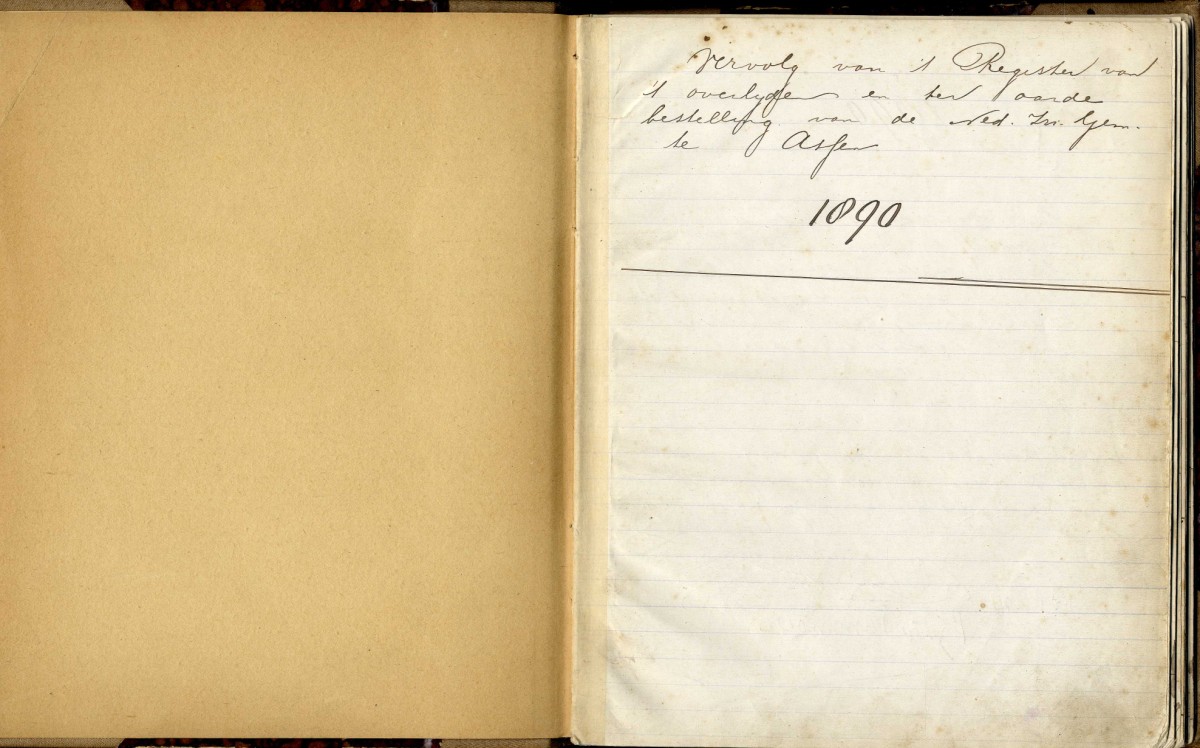 Vervolg van 't Register van
't overlyden en ter aarde
bestelling van de Ned. Isr. Gem.
te Assen
1890